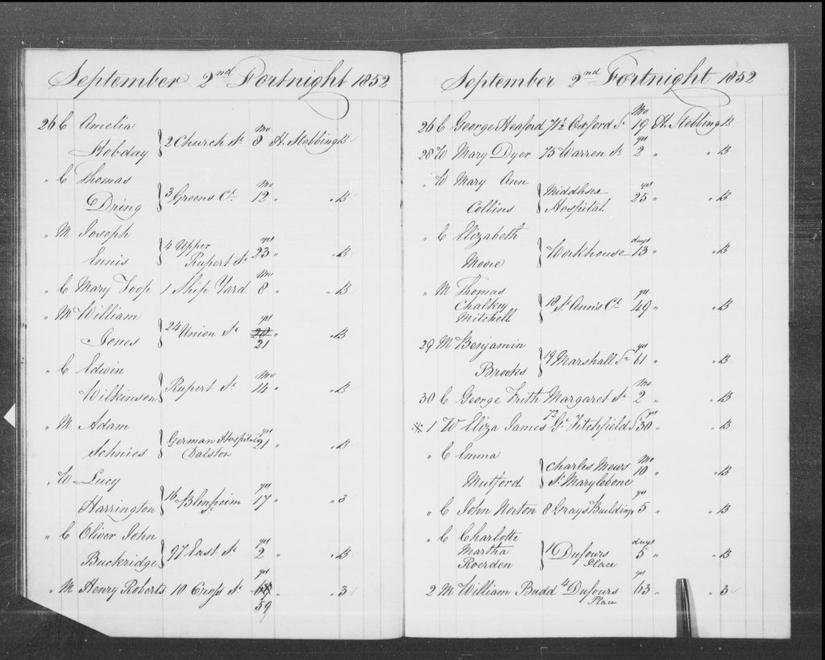 September 2nd Fortnight 1852
26 C Amelia
Hobday } 2 Church St Mo 8 H. Stebbing B
" C Thomas
Dring } 3 Greens Ct Mo 12 " " B
" M Joseph
Ennis } 4 Upper Rupert St yrs 23 " " B
" C Mary Toop 1 Ship Yard Mo 8 " " B
" M William
Jones } 24 Union St yrs 20 21 " " B
" C Edwin
Wilkinson } Rupert St Mo 14 " " B
" M Adam
Schnies } German Hospital Dalston yrs 21 " " B
" W Lucy
Harrington } 16 Blenheim yrs 17 " " 3
" C Oliver John
Buckeridge } 97 East St yrs 2 " " B
" M Henry Roberts 10 Cross St yrs 59 " " 3
September 2nd Fortnight 1852
26 C George Heaford 71½ Oxford St Mo 19 H. Stebbing B
28 W Mary Dyer 75 Warren St yrs 2 " " B
" W Mary Ann
Collins } Middlesex Hospital yrs 25 " " B
" C Elizabeth
Moore } Workhouse days 13 " " B
" M Thomas
Chalkey
Mitchell } 18 St Anns Ct yrs 49 " " B
29 M Benjamin
Brooks } 19 Marshall St yrs 61 " " B
30 C George Frith Margaret St Mo 2 " " B
1 W Eliza James 72 Gt Titchfield St yrs 30 " " B
" C Emma
Mutford } Charles Mews St Marylebone Mo 10 " " B
" C John Norton 8 Grays Buildings yrs 5 " " B
" C Charlotte
Martha
Roerden } 1 Dufours Place days 5 " " B
2 M William Budd 4 Dufours Place yrs 63 " " 3